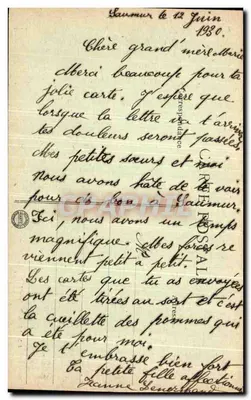 Saumur le 12 Juin
1930.
Chère grand'mère Marie
Merci beaucoup pour ta
jolie carte. J'espère que
lorsque la lettre va t'arriver
tes douleurs seront passées
Mes petites sœurs et moi
nous avons hâte de te voir
pour de bon à Saumur.
Ici, nous avons un temps
magnifique. Mes forces re
viennent petit à petit.
Les cartes que tu as envoyées
ont été tirées au sort et c'est
la cueillette des pommes qui
a été pour moi.
Je t'embrasse bien fort
Ta petite fille affectionnée
Jeanne
CARTE POSTALE
Correspondance